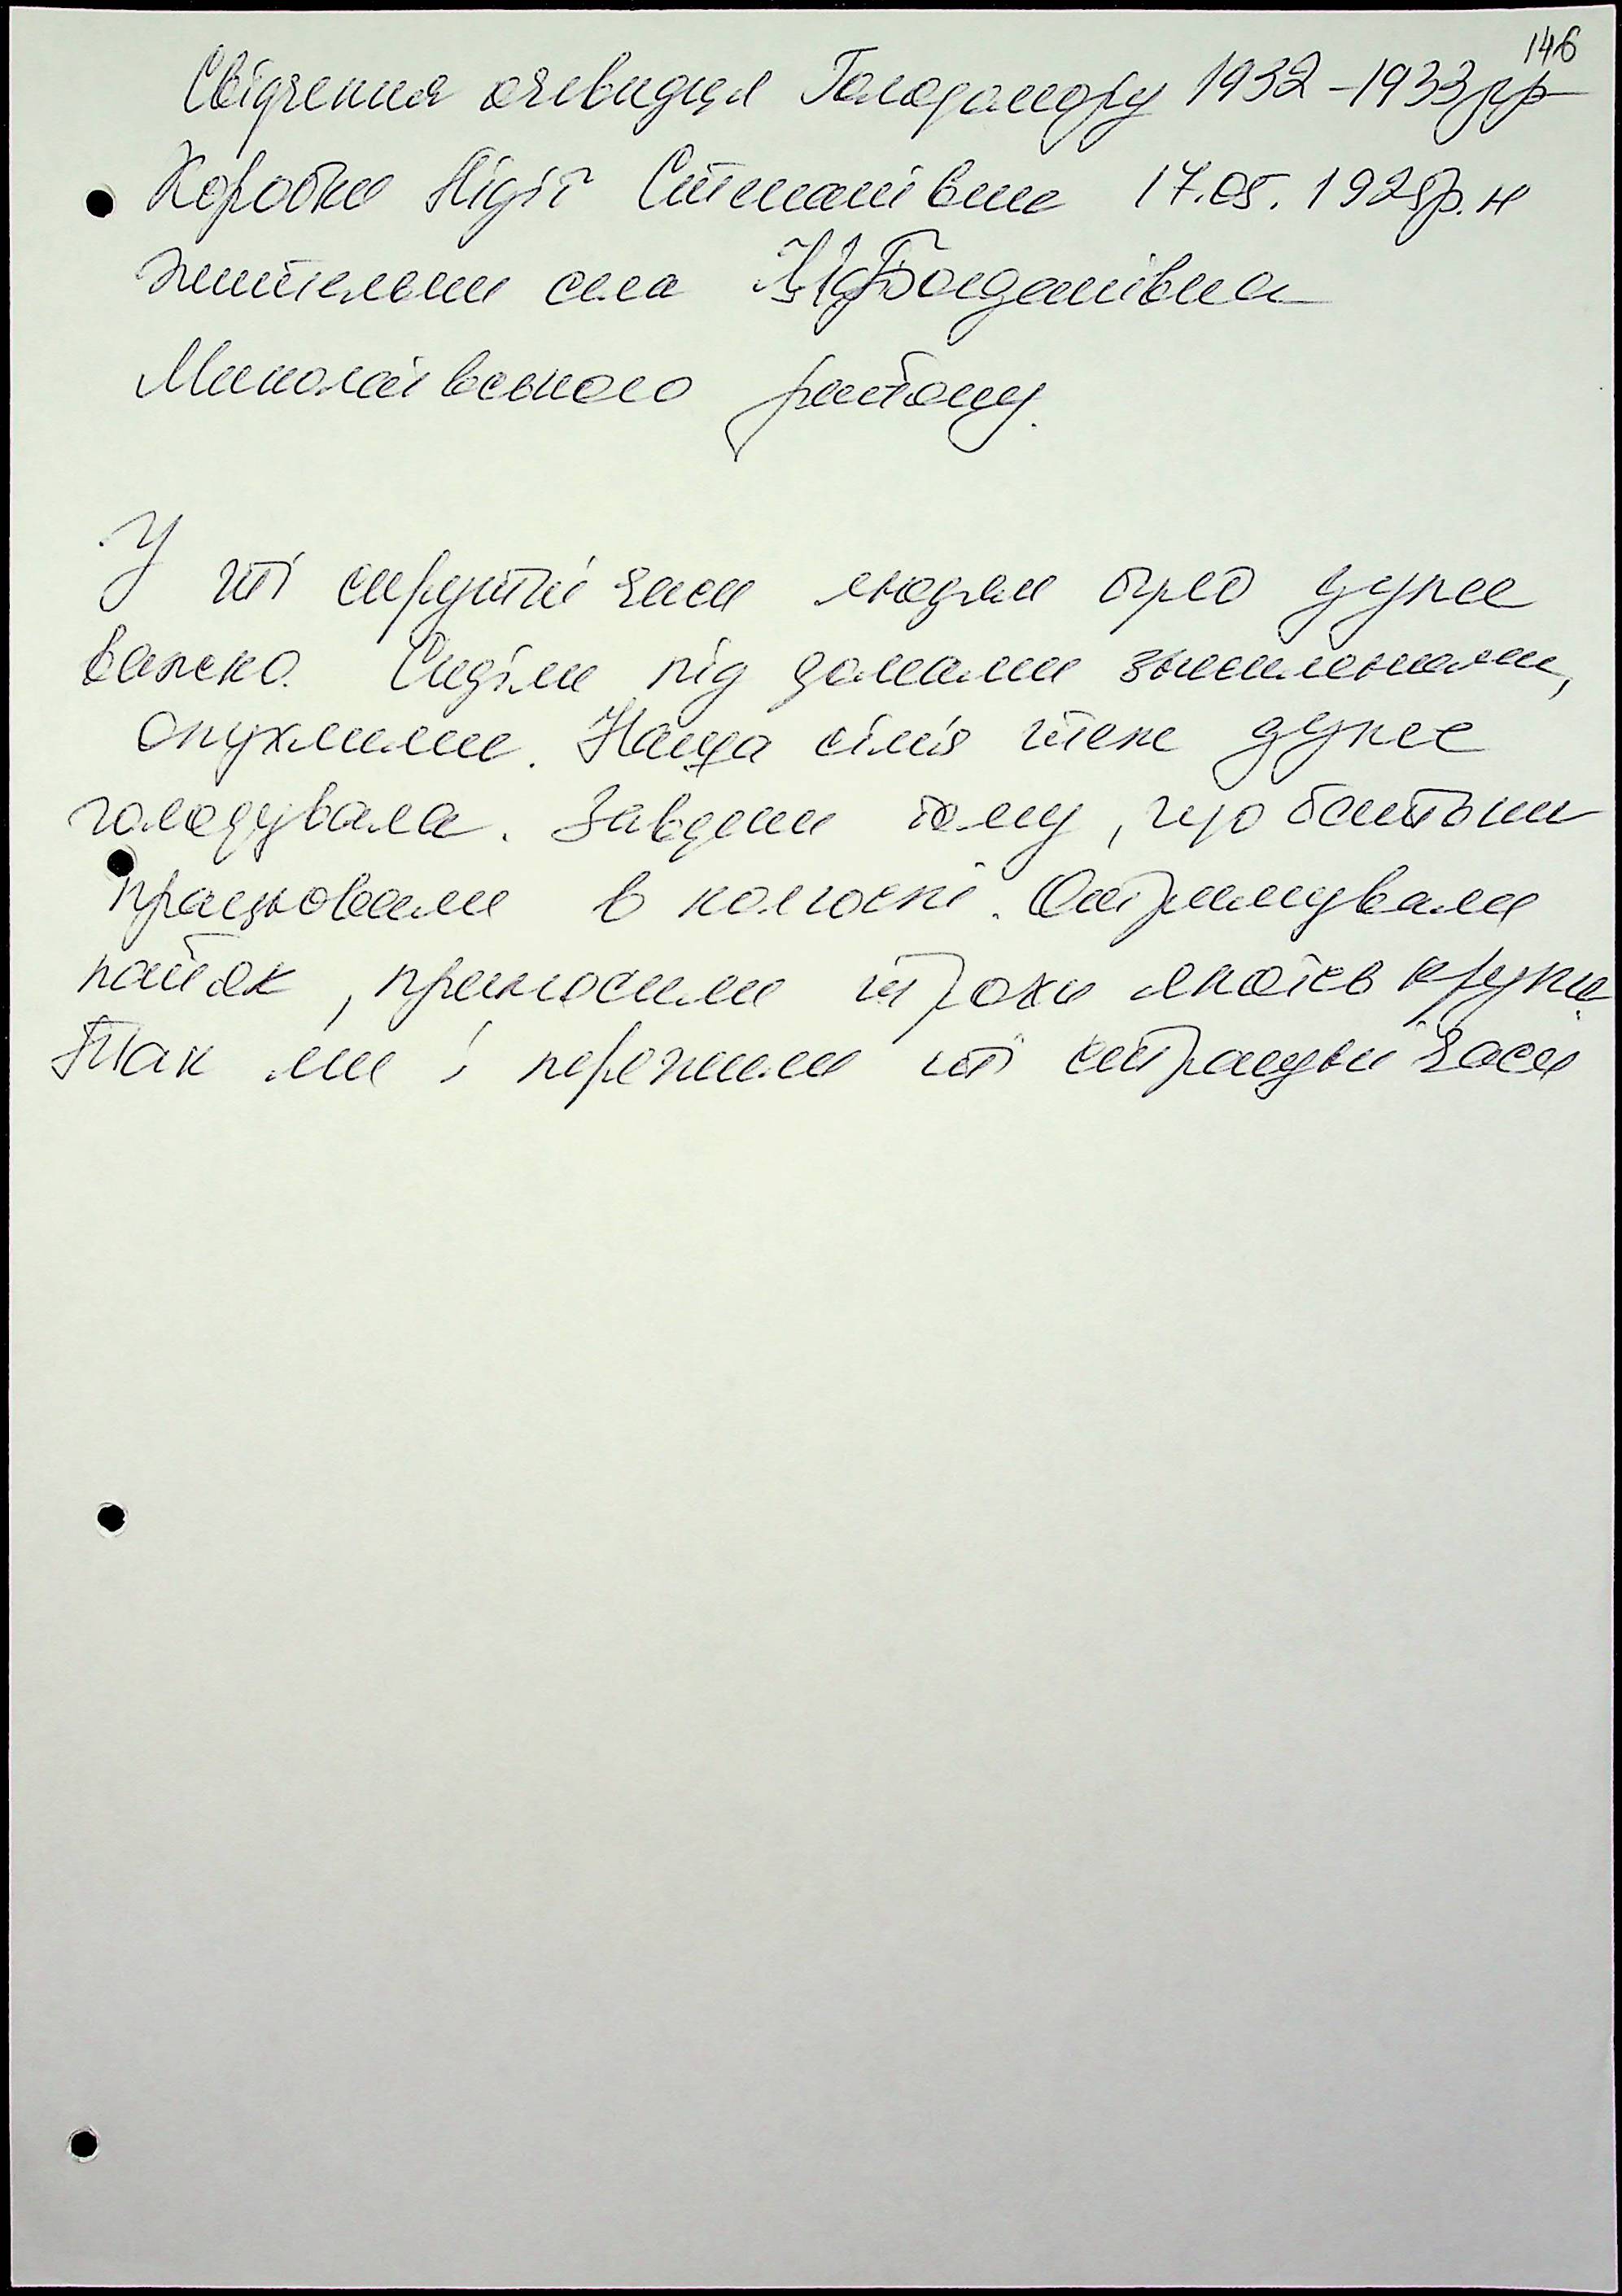 146
Свідчення очевидця Голодомору 1932-1933рр
Коробки Лідії Степанівни 17.05.1925р.н
жительки села Богданівка
Миколаївського району.
У ті скрутні часи людям було дуже
важко. Сиділи під домами знесиленими,
опухлими. Наша сім'я теж дуже
голодувала. Завдяки тому, що батьки
працювали в колгоспі. Отримували
пайок, приносили трохи якоїсь крупи.
Так ми і пережили ті страшні часи